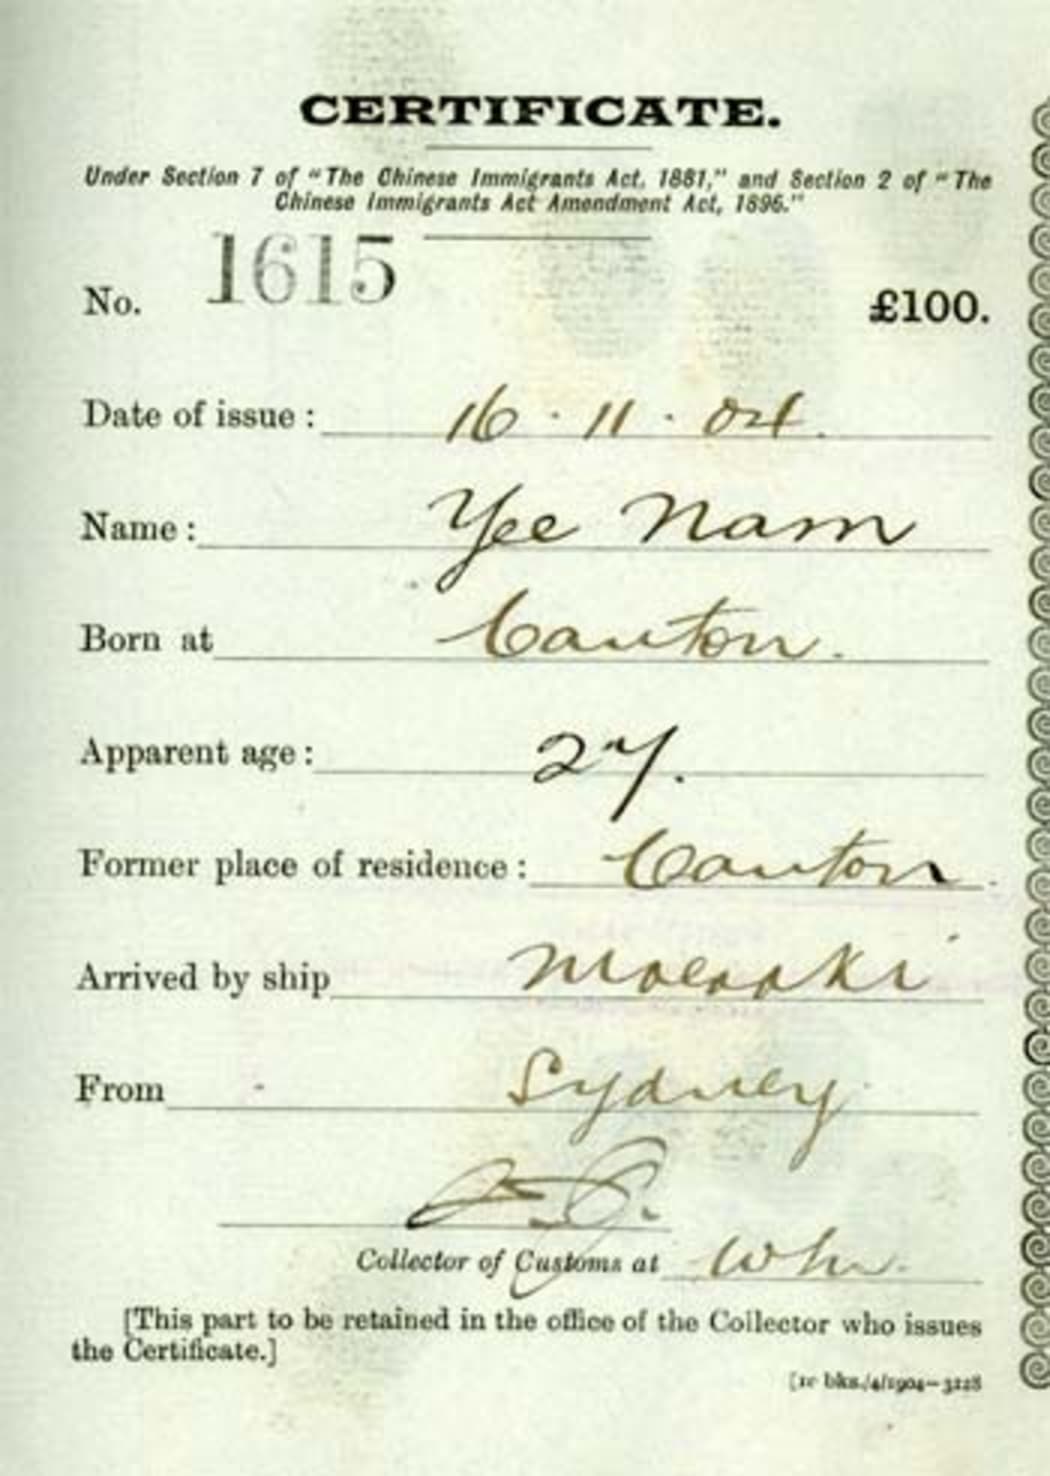 CERTIFICATE.
Under Section 7 of "The Chinese Immigrants Act, 1881," and Section 2 of "The
Chinese Immigrants Act Amendment Act, 1896."
No. 1615 £100.
Date of issue: 16.11.04.
Name: Yee Nam
Born at Canton.
Apparent age: 27.
Former place of residence: Canton.
Arrived by ship Moeraki
From Sydney
Collector of Customs at
[This part to be retained in the office of the Collector who issues
the Certificate.]
bks./4/1904—3228